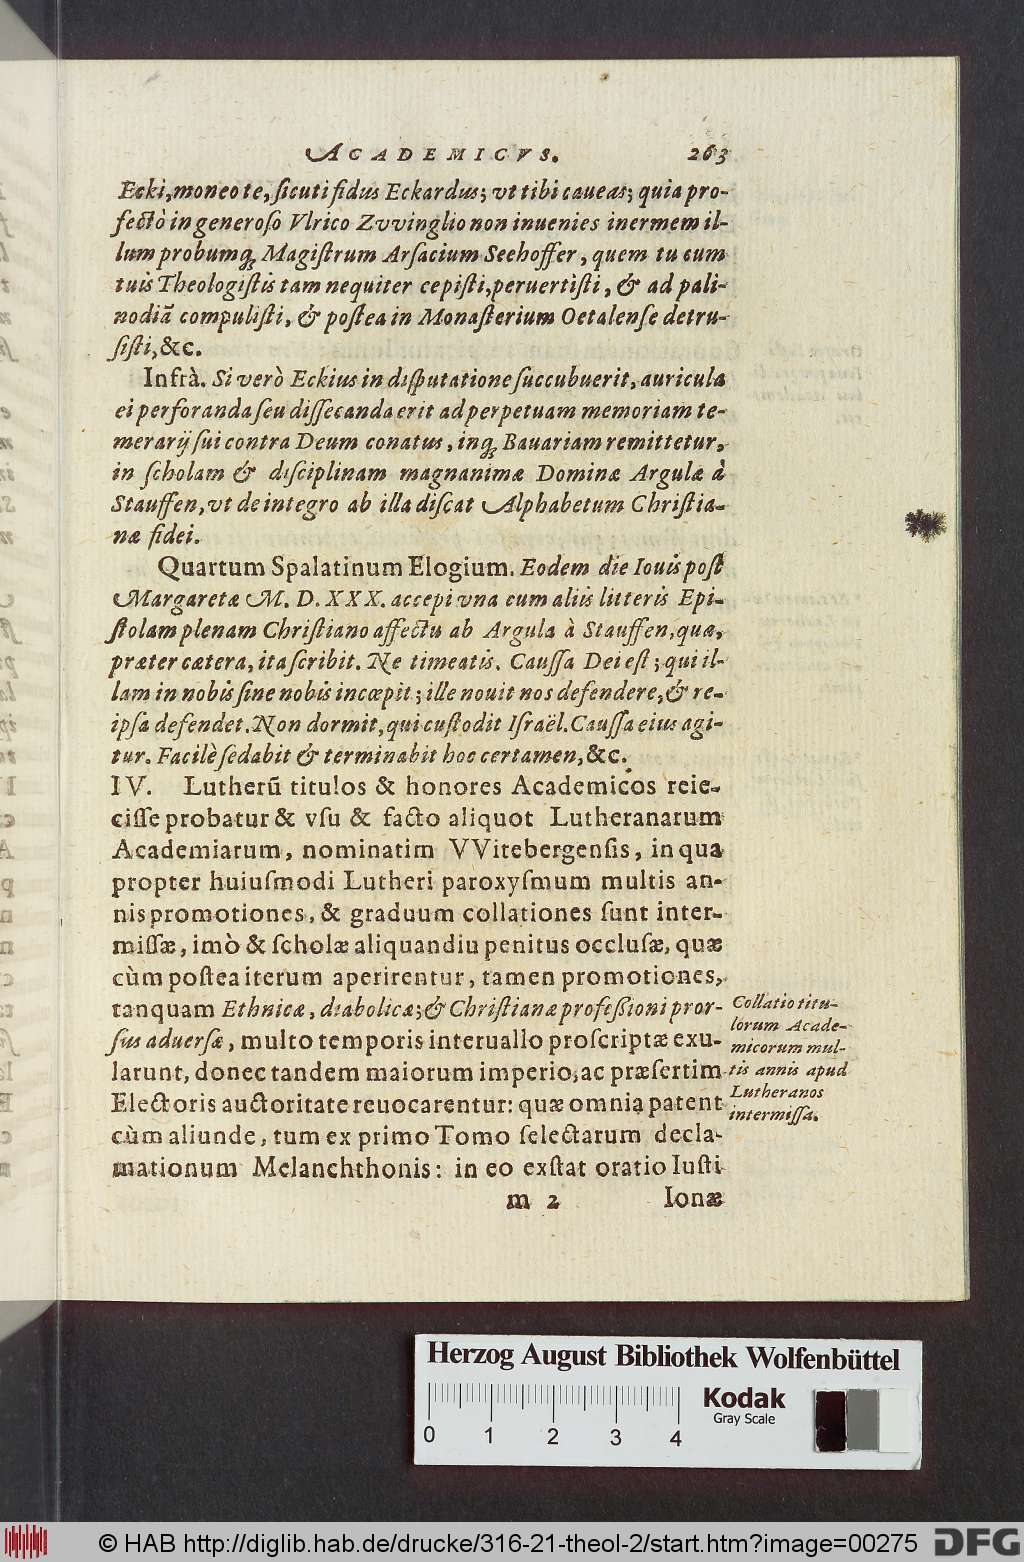 ACADEMICVS. 263
Ecki, moneo te, ſicuti fidus Eckardus; vt tibi caueas; quia pro-
fectò in generoſo Vlrico Zvvinglio non inuenies inermem il-
lum probumq́; Magiſtrum Arſacium Seehoffer, quem tu cum
tuis Theologiſtis tam nequiter cepiſti, peruertiſti, & ad pali-
nodiã compuliſti, & poſtea in Monaſterium Oetalenſe detru-
ſiſti, &c.
Infrà. Si verò Eckius in diſputatione ſuccubuerit, auricula
ei perforanda ſeu diſſecanda erit ad perpetuam memoriam te-
merarij ſui contra Deum conatus, inq́; Bauariam remittetur,
in ſcholam & diſciplinam magnanimæ Dominæ Argulæ à
Stauffen, vt de integro ab illa diſcat Alphabetum Chriſtia-
næ fidei.
Quartum Spalatinum Elogium. Eodem die Iouis poſt
Margaretæ M. D. XXX. accepi vna cum aliis litteris Epi-
ſtolam plenam Chriſtiano affectu ab Argula à Stauffen, quæ,
præter cætera, ita ſcribit. Ne timeatis. Cauſſa Dei eſt; qui il-
lam in nobis ſine nobis incœpit; ille nouit nos defendere, & re-
ipſa defendet. Non dormit, qui cuſtodit Iſraël. Cauſſa eius agi-
tur. Facilè ſedabit & terminabit hoc certamen, &c.
IV. Lutherũ titulos & honores Academicos reie-
ciſſe probatur & vſu & facto aliquot Lutheranarum
Academiarum, nominatim VVitebergenſis, in qua
propter huiuſmodi Lutheri paroxyſmum multis an-
nis promotiones, & graduum collationes ſunt inter-
miſſæ, imò & ſcholæ aliquandiu penitus occluſæ, quæ
cùm poſtea iterum aperirentur, tamen promotiones,
tanquam Ethnicæ, diabolicæ; & Chriſtianæ profeßioni pror-
ſus aduerſæ, multo temporis interuallo proſcriptæ exu-
larunt, donec tandem maiorum imperio, ac præſertim
Electoris auctoritate reuocarentur: quæ omnia patent
cùm aliunde, tum ex primo Tomo ſelectarum decla-
mationum Melanchthonis: in eo exſtat oratio Iuſti
m 2 Ionæ
Collatio titu-
lorum Acade-
micorum mul-
tis annis apud
Lutheranos
intermiſſa.
Herzog August Bibliothek Wolfenbüttel
Kodak
Gray Scale
0 1 2 3 4
© HAB http://diglib.hab.de/drucke/316-21-theol-2/start.htm?image=00275
DFG